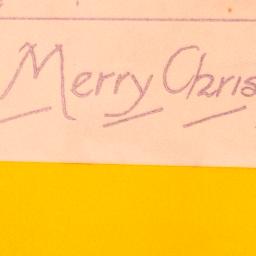 Merry Chris